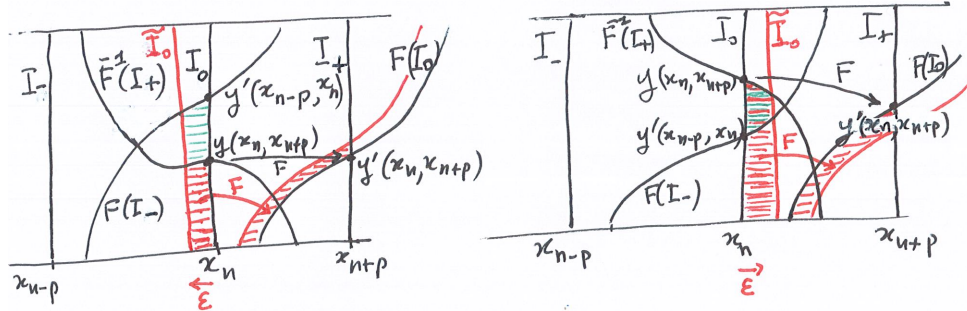 I₋
F⁻¹(I₊)
Ĩ₀
I₀
I₊
F(I₀)
y'(xₙ₋ₚ, xₙ)
y(xₙ, xₙ₊ₚ)
F
y'(xₙ, xₙ₊ₚ)
F
F(I₋)
xₙ₋ₚ
xₙ
xₙ₊ₚ
ε
I₋
F⁻¹(I₊)
I₀
Ĩ₀
I₊
F
F(I₀)
y(xₙ, xₙ₊ₚ)
y'(xₙ₋ₚ, xₙ)
y'(xₙ, xₙ₊ₚ)
F
F(I₋)
xₙ₋ₚ
xₙ
xₙ₊ₚ
ε